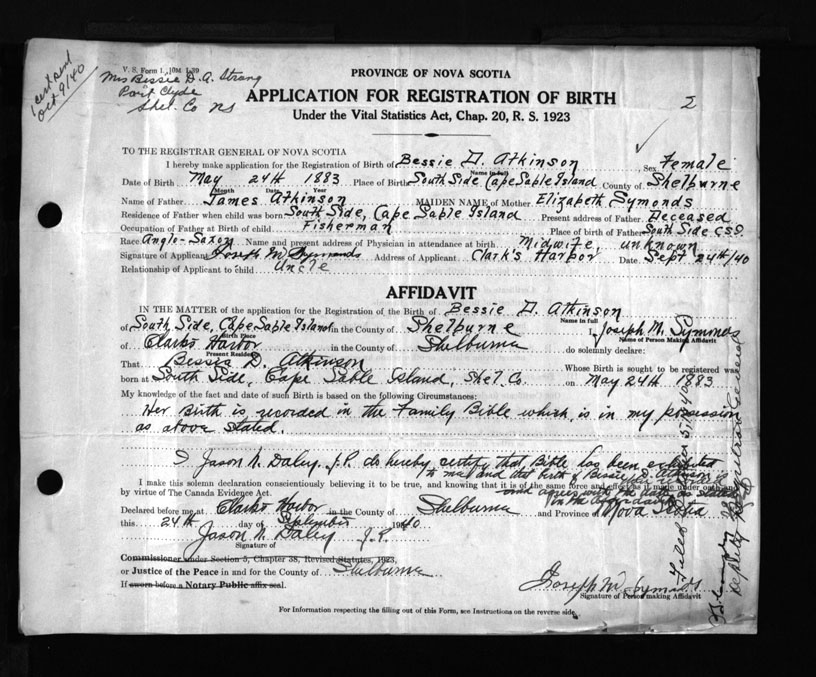 1 cert sent
Oct 9/40
V. S. Form 1. 10M 1-39
Mrs Bessie D. A. Strang
Port Clyde
Shel. Co NS
PROVINCE OF NOVA SCOTIA
APPLICATION FOR REGISTRATION OF BIRTH
2
Under the Vital Statistics Act, Chap. 20, R. S. 1923
TO THE REGISTRAR GENERAL OF NOVA SCOTIA
I hereby make application for the Registration of Birth of Bessie D. Atkinson Sex Female
Name in full
Date of Birth May 24th 1883 Place of Birth South Side Cape Sable Island County of Shelburne
Month Date Year
Name of Father James Atkinson MAIDEN NAME of Mother Elizabeth Symonds
Residence of Father when child was born South Side, Cape Sable Island Present address of Father Deceased
Occupation of Father at Birth of child Fisherman Place of birth of Father South Side CSI.
Race Anglo-Saxon Name and present address of Physician in attendance at birth Midwife, unknown
Signature of Applicant Joseph M Symonds Address of Applicant Clark's Harbor Date Sept 24th/40
Relationship of Applicant to child Uncle
AFFIDAVIT
IN THE MATTER of the application for the Registration of the Birth of Bessie D. Atkinson
Name in full
of South Side, Cape Sable Island in the County of Shelburne I, Joseph M. Symonds
Birth Place Name of Person Making Affidavit
of Clarks Harbor in the County of Shelburne do solemnly declare:
Present Residence
That Bessie D. Atkinson Whose Birth is sought to be registered was
born at South Side, Cape Sable Island, Shel. Co. on May 24th 1883
My knowledge of the fact and date of such Birth is based on the following Circumstances:
Her Birth is recorded in the Family Bible which is in my possession
as above stated.
I Jason N. Daley J.P. do hereby certify that Bible has been exhibited
to me and that birth of Bessie D. Atkinson is
I make this solemn declaration conscientiously believing it to be true, and knowing that it is of the same force and effect as if made under oath and
and agrees with the date as stated
by virtue of The Canada Evidence Act.
in the affidavit
Declared before me at Clarks Harbor in the County of Shelburne and Province of Nova Scotia
this 24th day of September 1940
Jason N. Daley J.P.
Signature of
Commissioner under Section 5, Chapter 38, Revised Statutes, 1923,
or Justice of the Peace in and for the County of Shelburne
If sworn before a Notary Public affix seal.
Joseph M Symonds
Signature of Person making Affidavit
For Information respecting the filling out of this Form, see Instructions on the reverse side.
Filed October 5th 1940
Deputy Registrar General